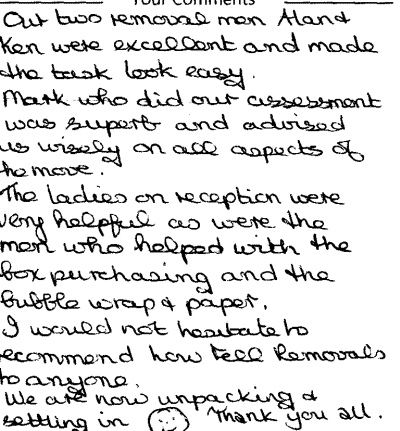 Your Comments
Our two removal men Al and
Ken were excellent and made
the task look easy.
Mark who did our assessment
was superb and advised
us wisely on all aspects of
the move.
The ladies on reception were
very helpful as were the
men who helped with the
box purchasing and the
bubble wrap & paper.
I would not hesitate to
recommend how Tell Removals
to anyone.
We are now unpacking &
settling in Thank you all.